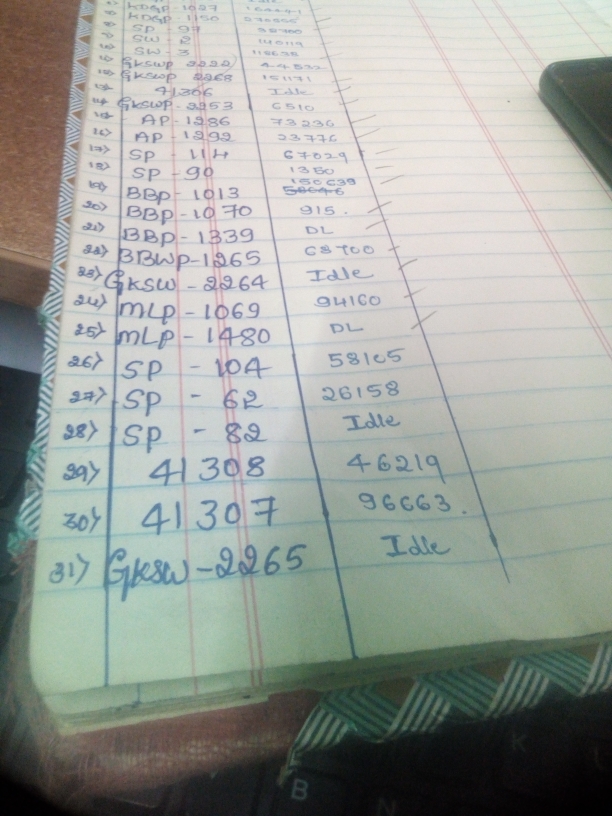 KDGP - 1027
KDGP - 1150
SP - 97
SW - 2
SW - 3 115638
GKSWP 2222
GKSWP 2268 151171
13) 41306 Idle
14) GKSWP - 2253 6510
15) AP - 1286 73236
16) AP - 1292 23776
17) SP - 114 67029
18) SP - 90 1350
19) BBP - 1013 150639
20) BBP - 1070 915.
21) BBP - 1339 DL
22) BBWP - 1265 68700
23) GKSW - 2264 Idle
24) MLP - 1069 94160
25) MLP - 1480 DL
26) SP - 104 58105
27) SP - 62 26158
28) SP - 82 Idle
29) 41308 46219
30) 41307 96663.
31) GKSW - 2265 Idle
B
N
K